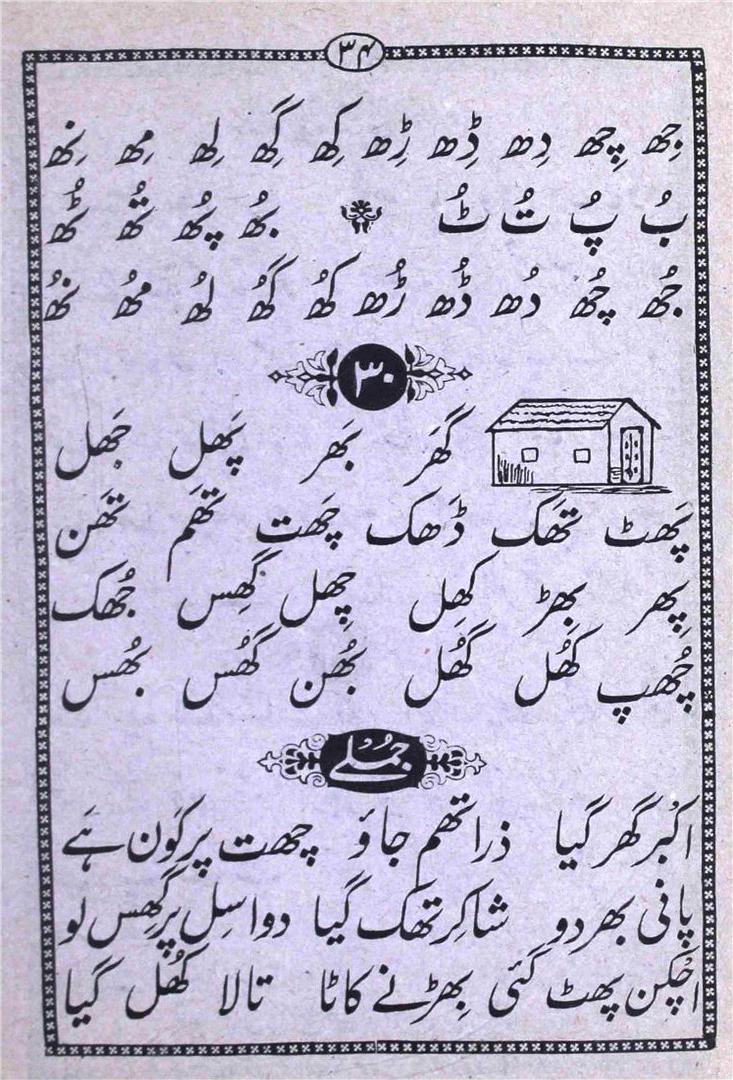 ۳۴
جِھ چِھ دِھ ڈِھ ڑِھ کِھ گِھ لِھ مِھ نِھ
بُ پُ تُ ٹُ بُھ پُھ تُھ ٹُھ
جُھ چُھ دُھ ڈُھ ڑُھ کُھ گُھ لُھ مُھ نُھ
۳۰
گَھر بَھر پَھل جَھل
پَھٹ تَھک ڈَھک چَھت تَھم تَھن
پِھر بِھڑ کِھل چِھل گِھس جُھک
چُھپ کُھل گُھل بُھن گُھس بُھس
جُملے
اکْبر گھر گیا ذرا تھم جاؤ چھت پر کَون ہَے
پانی بھر دو شاکِر تھک گیا دوا سِل پر گھِس لو
اچْکن پھٹ گئی بِھڑ نے کاٹا تالا کُھل گیا